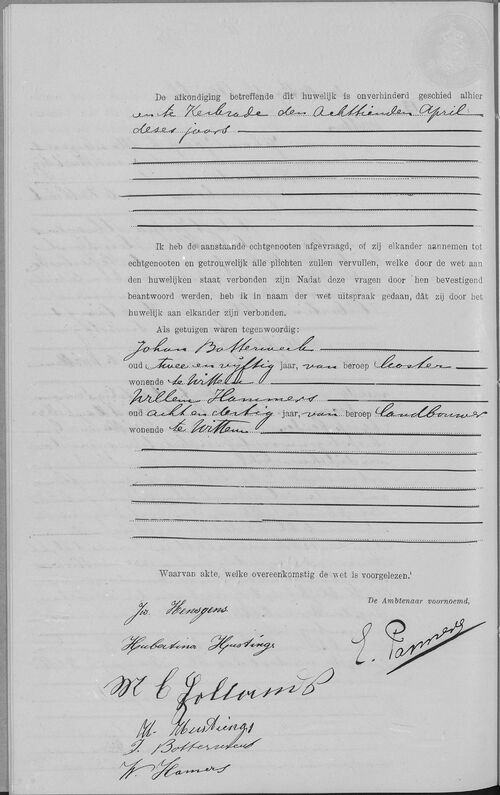 De afkondiging betreffende dit huwelijk is onverhinderd geschied alhier
en te Kerkrade den Achttienden April
dezes jaars
Ik heb de aanstaande echtgenooten afgevraagd, of zij elkander aannemen tot
echtgenooten en getrouwelijk alle plichten zullen vervullen, welke door de wet aan
den huwelijken staat verbonden zijn Nadat deze vragen door hen bevestigend
beantwoord werden, heb ik in naam der wet uitspraak gedaan, dat zij door het
huwelijk aan elkander zijn verbonden.
Als getuigen waren tegenwoordig:
Johan Botterweck
oud twee en vijftig jaar, van beroep koster
wonende te Wittem
Willem Hammers
oud acht en dertig jaar, van beroep landbouwer
wonende te Wittem
Waarvan akte, welke overeenkomstig de wet is voorgelezen.
De Ambtenaar voornoemd,
Jos. Hensgens
Hubertina Hustings
E. Panmers
M C
M. Hustings
J. Botterweck
W. Hamers